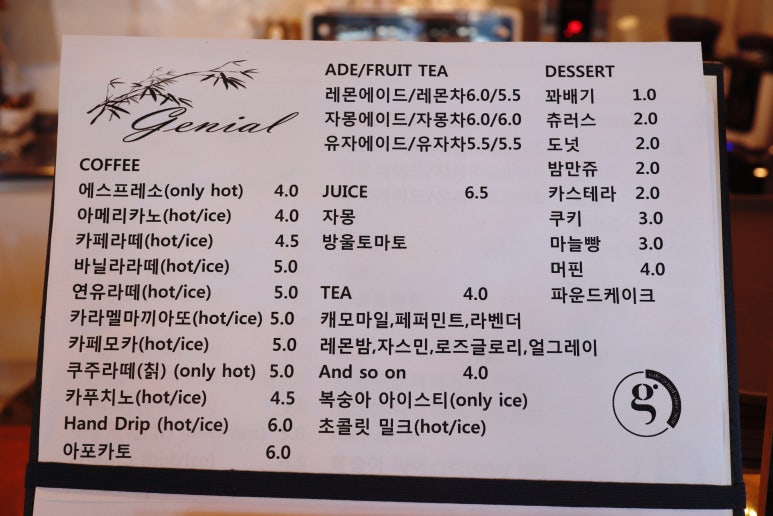 Genial
COFFEE
에스프레소(only hot) 4.0
아메리카노(hot/ice) 4.0
카페라떼(hot/ice) 4.5
바닐라라떼(hot/ice) 5.0
연유라떼(hot/ice) 5.0
카라멜마끼아또(hot/ice) 5.0
카페모카(hot/ice) 5.0
쿠주라떼(칡) (only hot) 5.0
카푸치노(hot/ice) 4.5
Hand Drip (hot/ice) 6.0
아포카토 6.0
ADE/FRUIT TEA
레몬에이드/레몬차6.0/5.5
자몽에이드/자몽차6.0/6.0
유자에이드/유자차5.5/5.5
JUICE 6.5
자몽
방울토마토
TEA 4.0
캐모마일,페퍼민트,라벤더
레몬밤,자스민,로즈글로리,얼그레이
And so on 4.0
복숭아 아이스티(only ice)
초콜릿 밀크(hot/ice)
DESSERT
꽈배기 1.0
츄러스 2.0
도넛 2.0
밤만쥬 2.0
카스테라 2.0
쿠키 3.0
마늘빵 3.0
머핀 4.0
파운드케이크
g